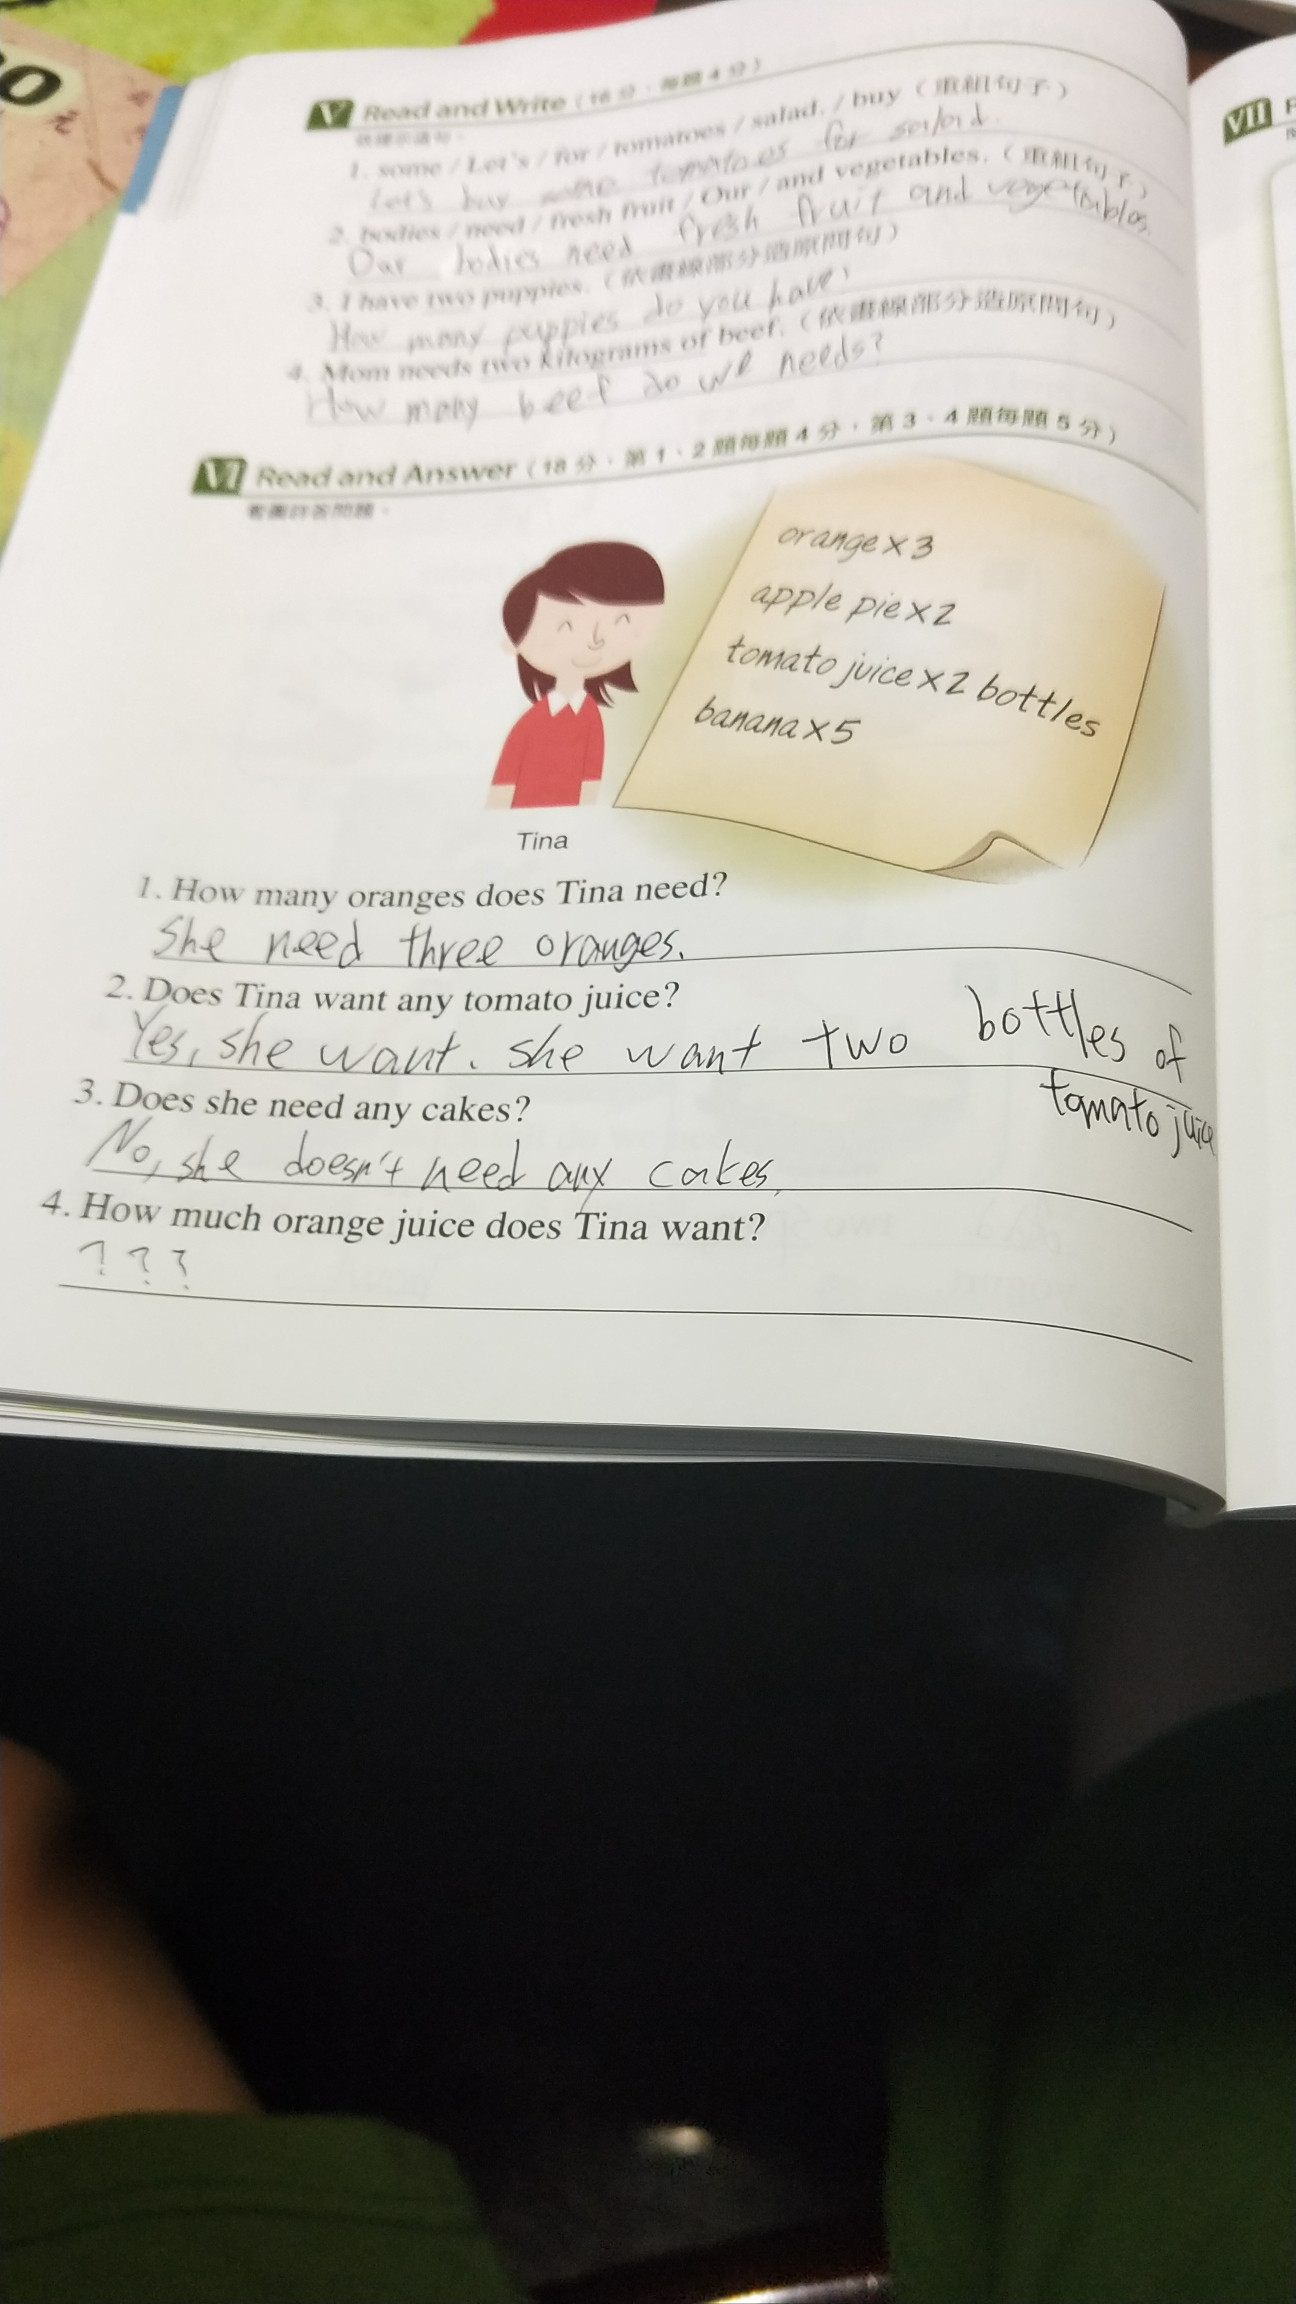 V Read and Write (16 分，每題 4 分)
1. some / Let's / for / tomatoes / salad. / buy (重組句子)
Let's buy some tomatoes for salad.
2. bodies / need / fresh fruit / Our / and vegetables. (重組句子)
Our bodies need fresh fruit and vegetables.
3. I have two puppies. (依畫線部分造原問句)
How many puppies do you have?
4. Mom needs two kilograms of beef. (依畫線部分造原問句)
How many beef do we needs?
VI Read and Answer (18 分，第 1、2 題每題 4 分，第 3、4 題每題 5 分)
看圖詳答問題。
orange x 3
apple pie x 2
tomato juice x 2 bottles
banana x 5
Tina
1. How many oranges does Tina need?
She need three oranges.
2. Does Tina want any tomato juice?
Yes, she want. she want two bottles of
tomato juice
3. Does she need any cakes?
No, she doesn't need any cakes.
4. How much orange juice does Tina want?
? ? ?
VII